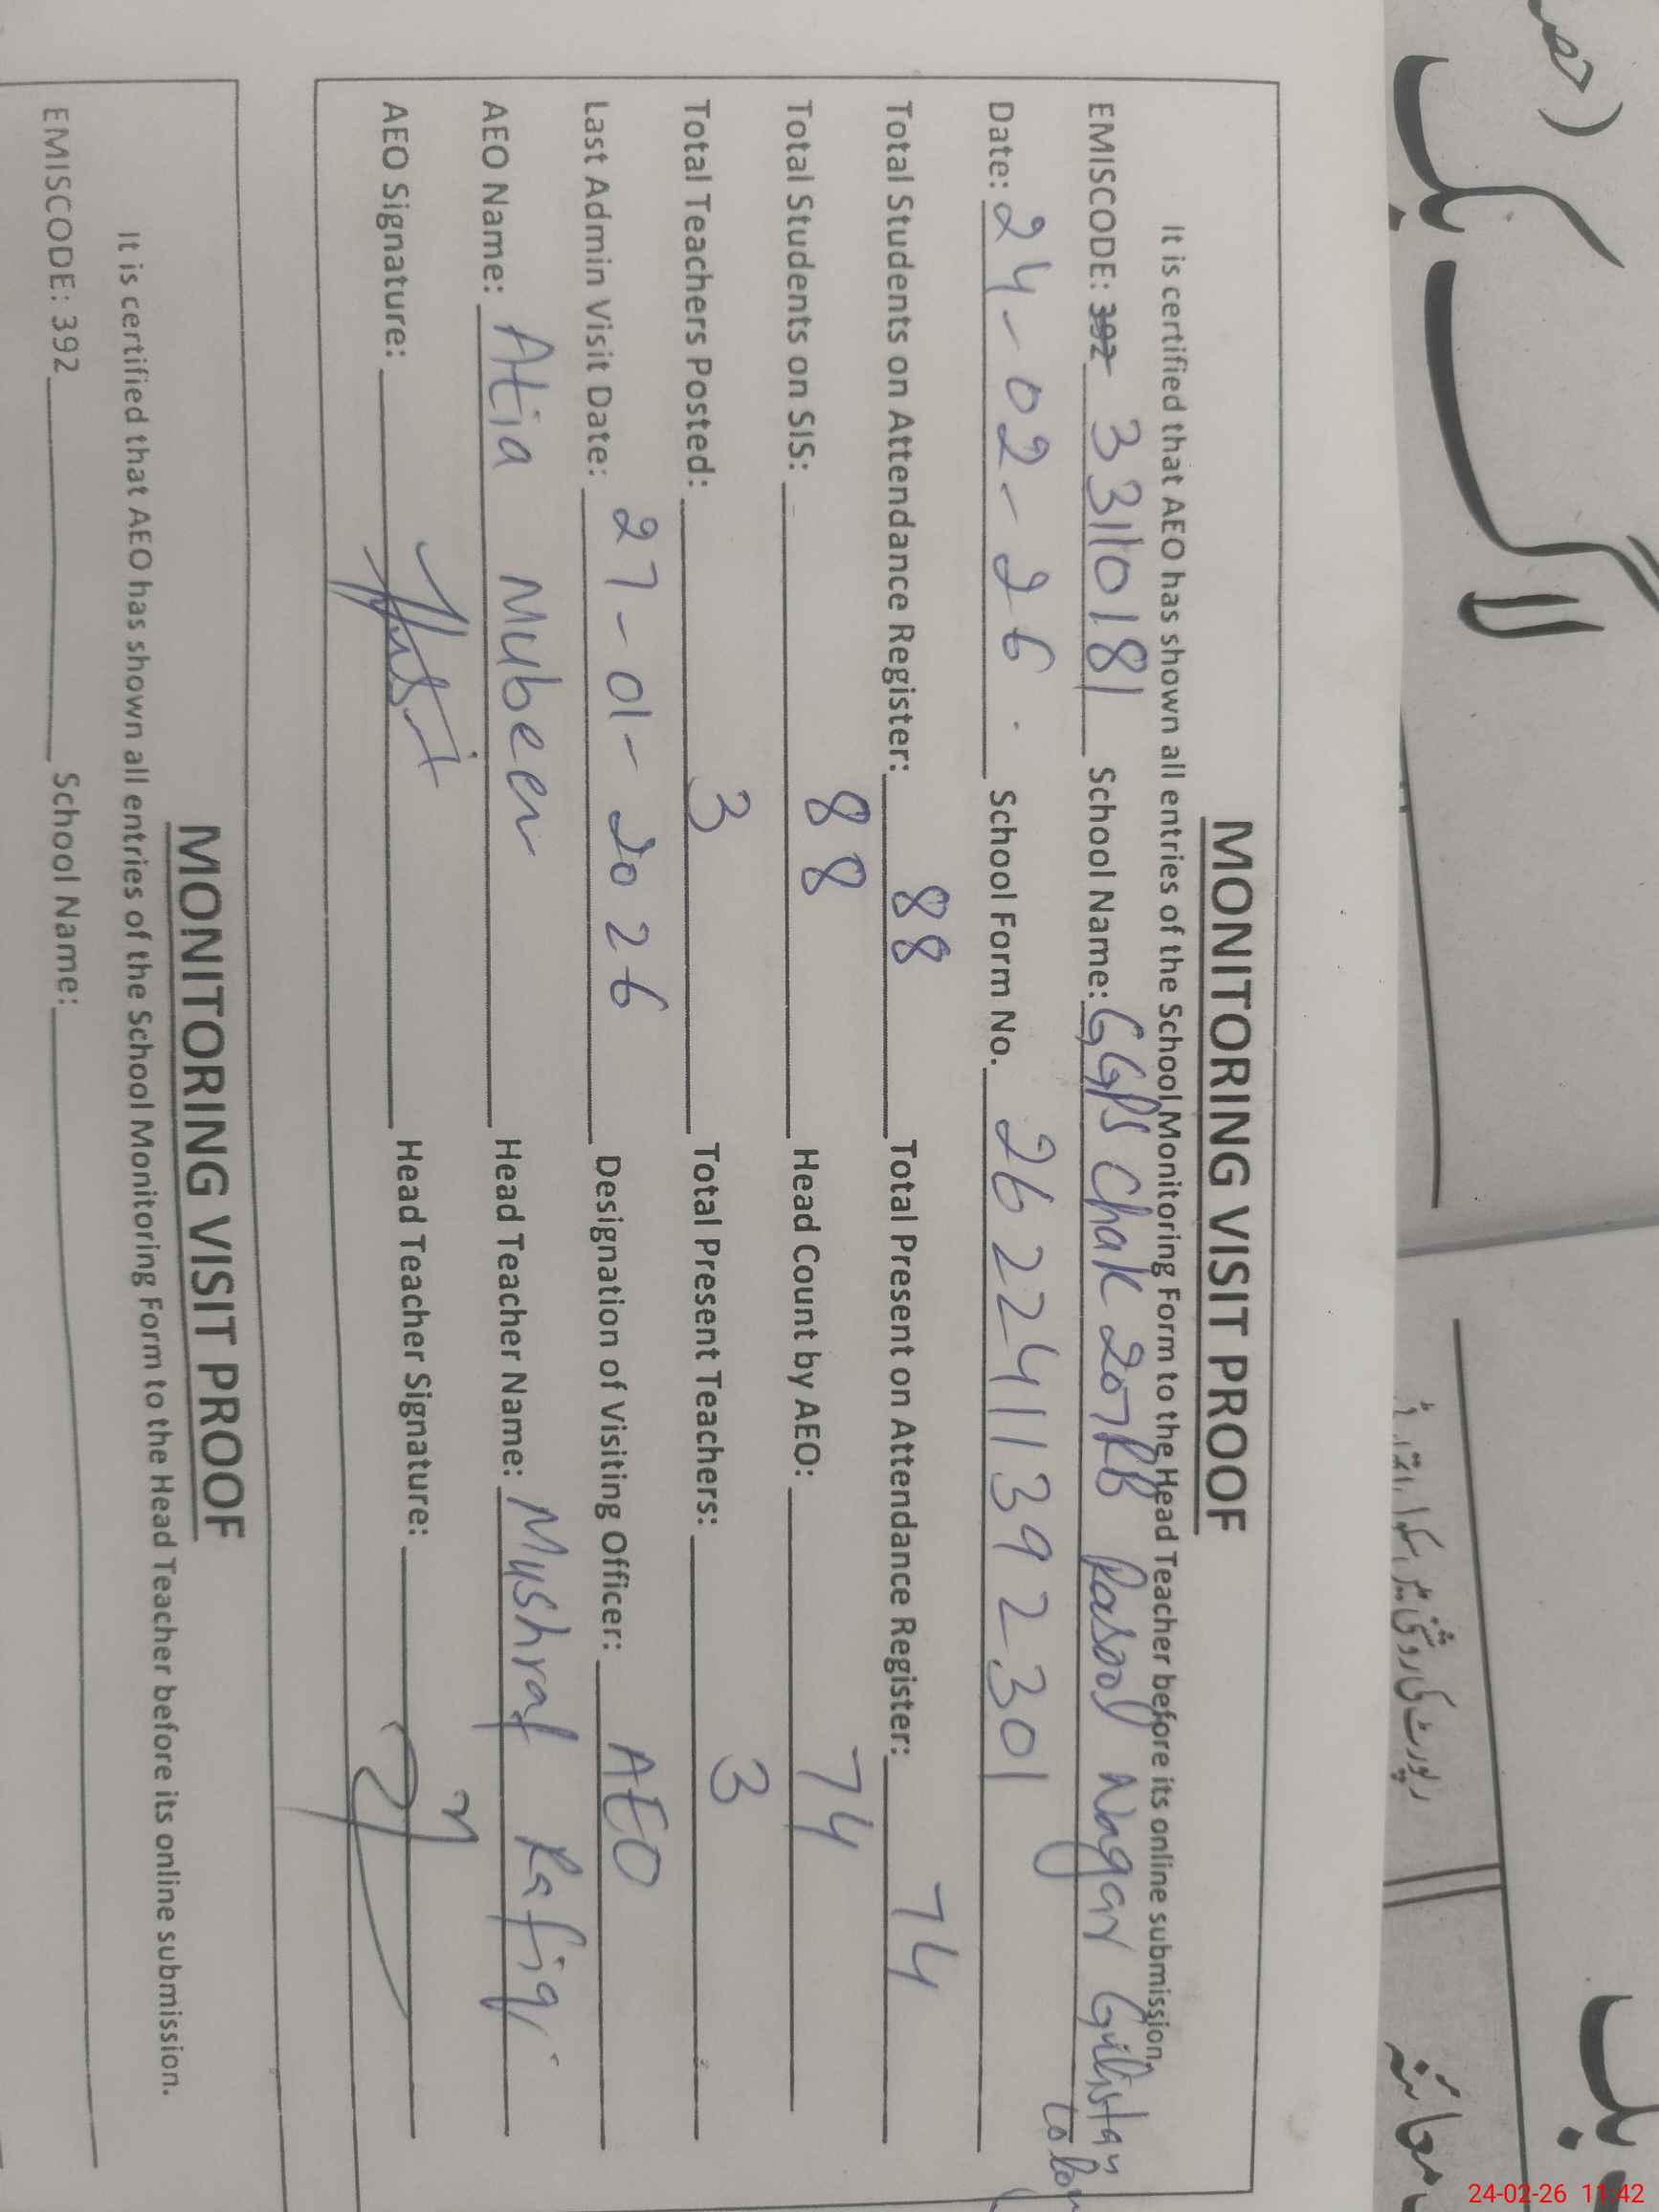 MONITORING VISIT PROOF
It is certified that AEO has shown all entries of the School Monitoring Form to the Head Teacher before its online submission.
EMISCODE: 392 33110181 School Name: GGPS Chak 207RB Rasool Nagar Gulistan
Date: 24-02-26. School Form No. 2622411392301
Total Students on Attendance Register: 88 Total Present on Attendance Register: 74
Total Students on SIS: 88 Head Count by AEO: 74
Total Teachers Posted: 3 Total Present Teachers: 3
Last Admin Visit Date: 27-01-2026 Designation of Visiting Officer: AEO
AEO Name: Atia Mubeen Head Teacher Name: Mushraf Rafiq
AEO Signature: Head Teacher Signature:
MONITORING VISIT PROOF
It is certified that AEO has shown all entries of the School Monitoring Form to the Head Teacher before its online submission.
EMISCODE: 392 School Name:
24-02-26 11:42